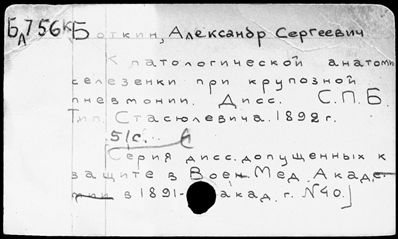 Бл 756к Боткин, Александр Сергеевич
К патологической анатоми
селезенки при крупозной
пневмонии. Дисс. С.П.Б.
Тип. Стасюлевича. 1892 г.
51 с.
(Серия дисс. допущенных к
защите в Воен. Мед. Акаде-
мии в 1891- акад. г. №40.)